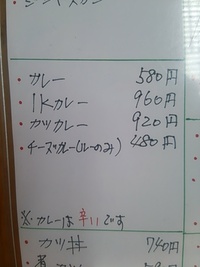 ・カレー 580円
・1kカレー 960円
・カツカレー 920円
・チーズカレー(ルーのみ) 480円
※カレーは辛いです
・カツ丼 740円